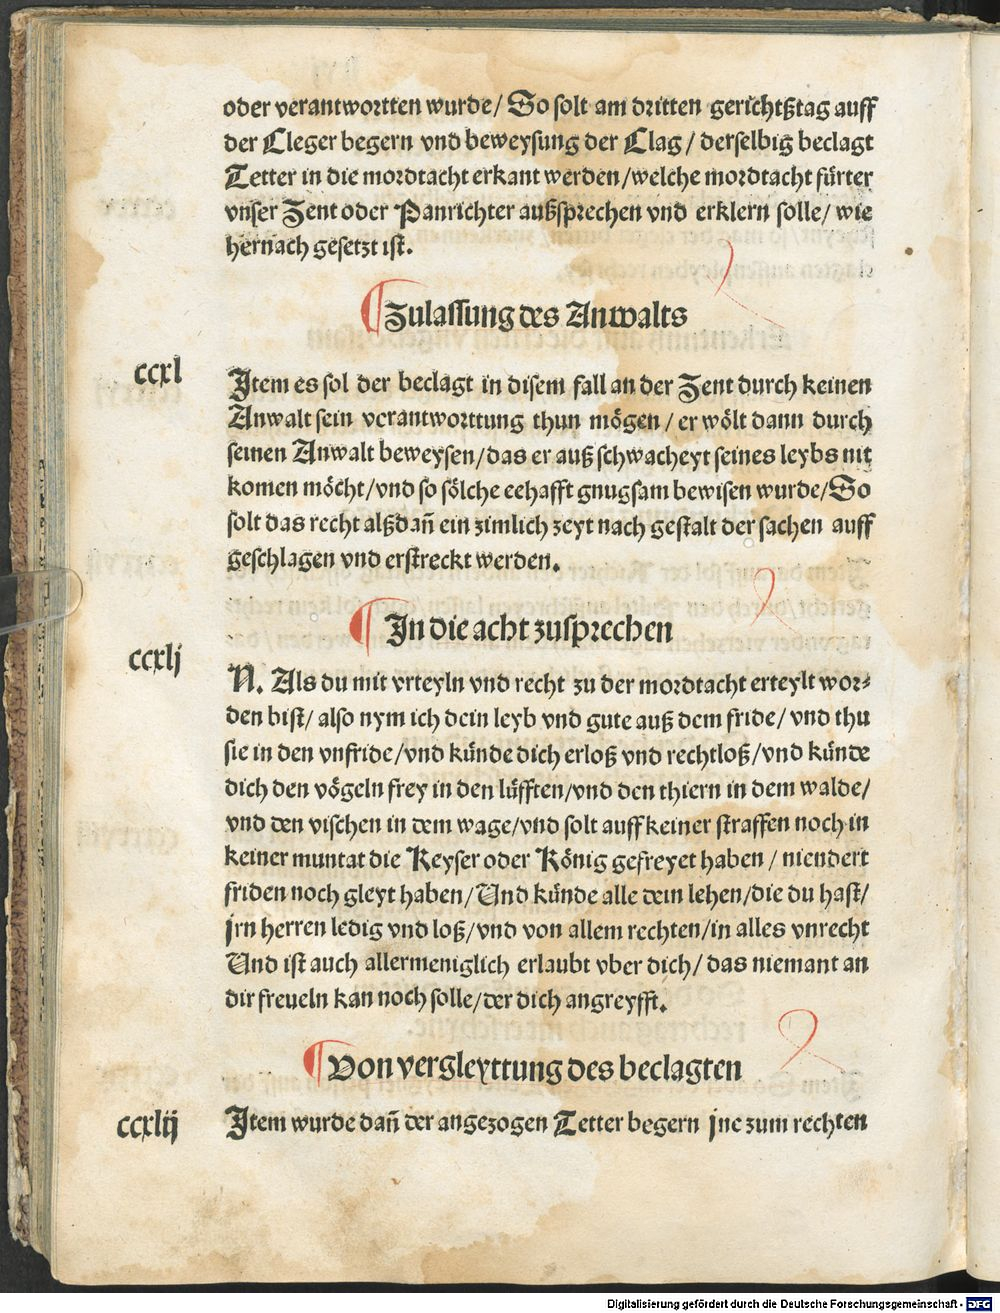 oder verantwortten wurde/ So solt am dritten gerichtßtag auff
der Cleger begern vnd beweysung der Clag/ derselbig beclagt
Tetter in die mordtacht erkant werden/welche mordtacht fürter
vnser Zent oder Panrichter außsprechen vnd erklern solle/ wie
hernach gesetzt ist.
¶Zulassung des Anwalts
ccxl
Jtem es sol der beclagt in disem fall an der Zent durch keinen
Anwalt sein verantworttung thun mögen/ er wölt dann durch
seinen Anwalt beweysen/das er auß schwacheyt seines leybs nit
komen möcht/vnd so sölche eehafft gnugsam bewisen wurde/So
solt das recht alßdañ ein zimlich zeyt nach gestalt der sachen auff
geschlagen vnd erstreckt werden.
¶Jn die acht zusprechen
ccxlj
N. Als du mit vrteyln vnd recht zu der mordtacht erteylt wor⸗
den bist/ also nym ich dein leyb vnd gute auß dem fride/ vnd thu
sie in den vnfride/vnd künde dich erloß vnd rechtloß/vnd künde
dich den vögeln frey in den lüfften/vnd den thiern in dem walde/
vnd den vischen in dem wage/vnd solt auff keiner straffen noch in
keiner muntat die Keyser oder König gefreyet haben/ niendert
friden noch gleyt haben/Und künde alle dein lehen/die du hast/
jrn herren ledig vnd loß/vnd von allem rechten/in alles vnrecht
Und ist auch allermeniglich erlaubt vber dich/ das niemant an
dir freueln kan noch solle/der dich angreyfft.
¶Von vergleyttung des beclagten
ccxlij
Jtem wurde dañ der angezogen Tetter begern jne zum rechten
Digitalisierung gefördert durch die Deutsche Forschungsgemeinschaft - DFG